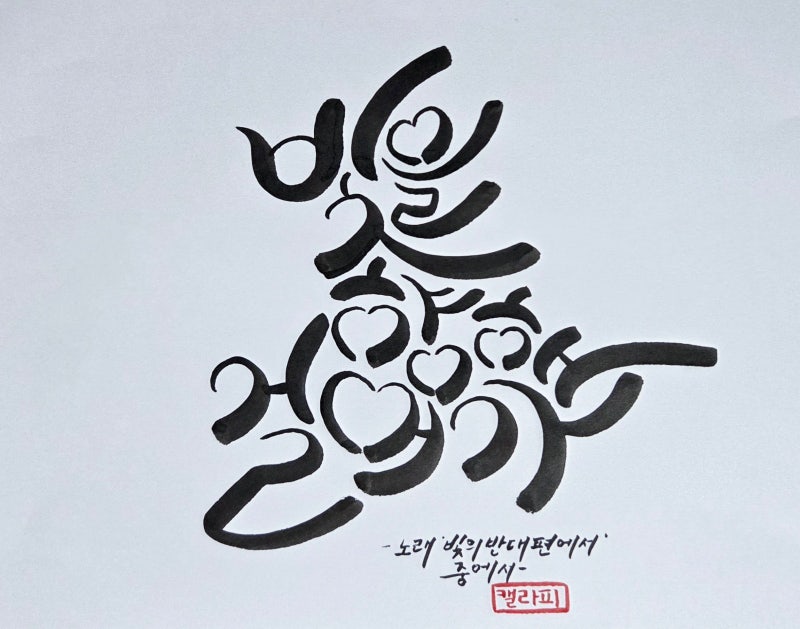 빛을
향해
걸어가
-노래 '빛의 반대편에서'
중에서-
캘라피